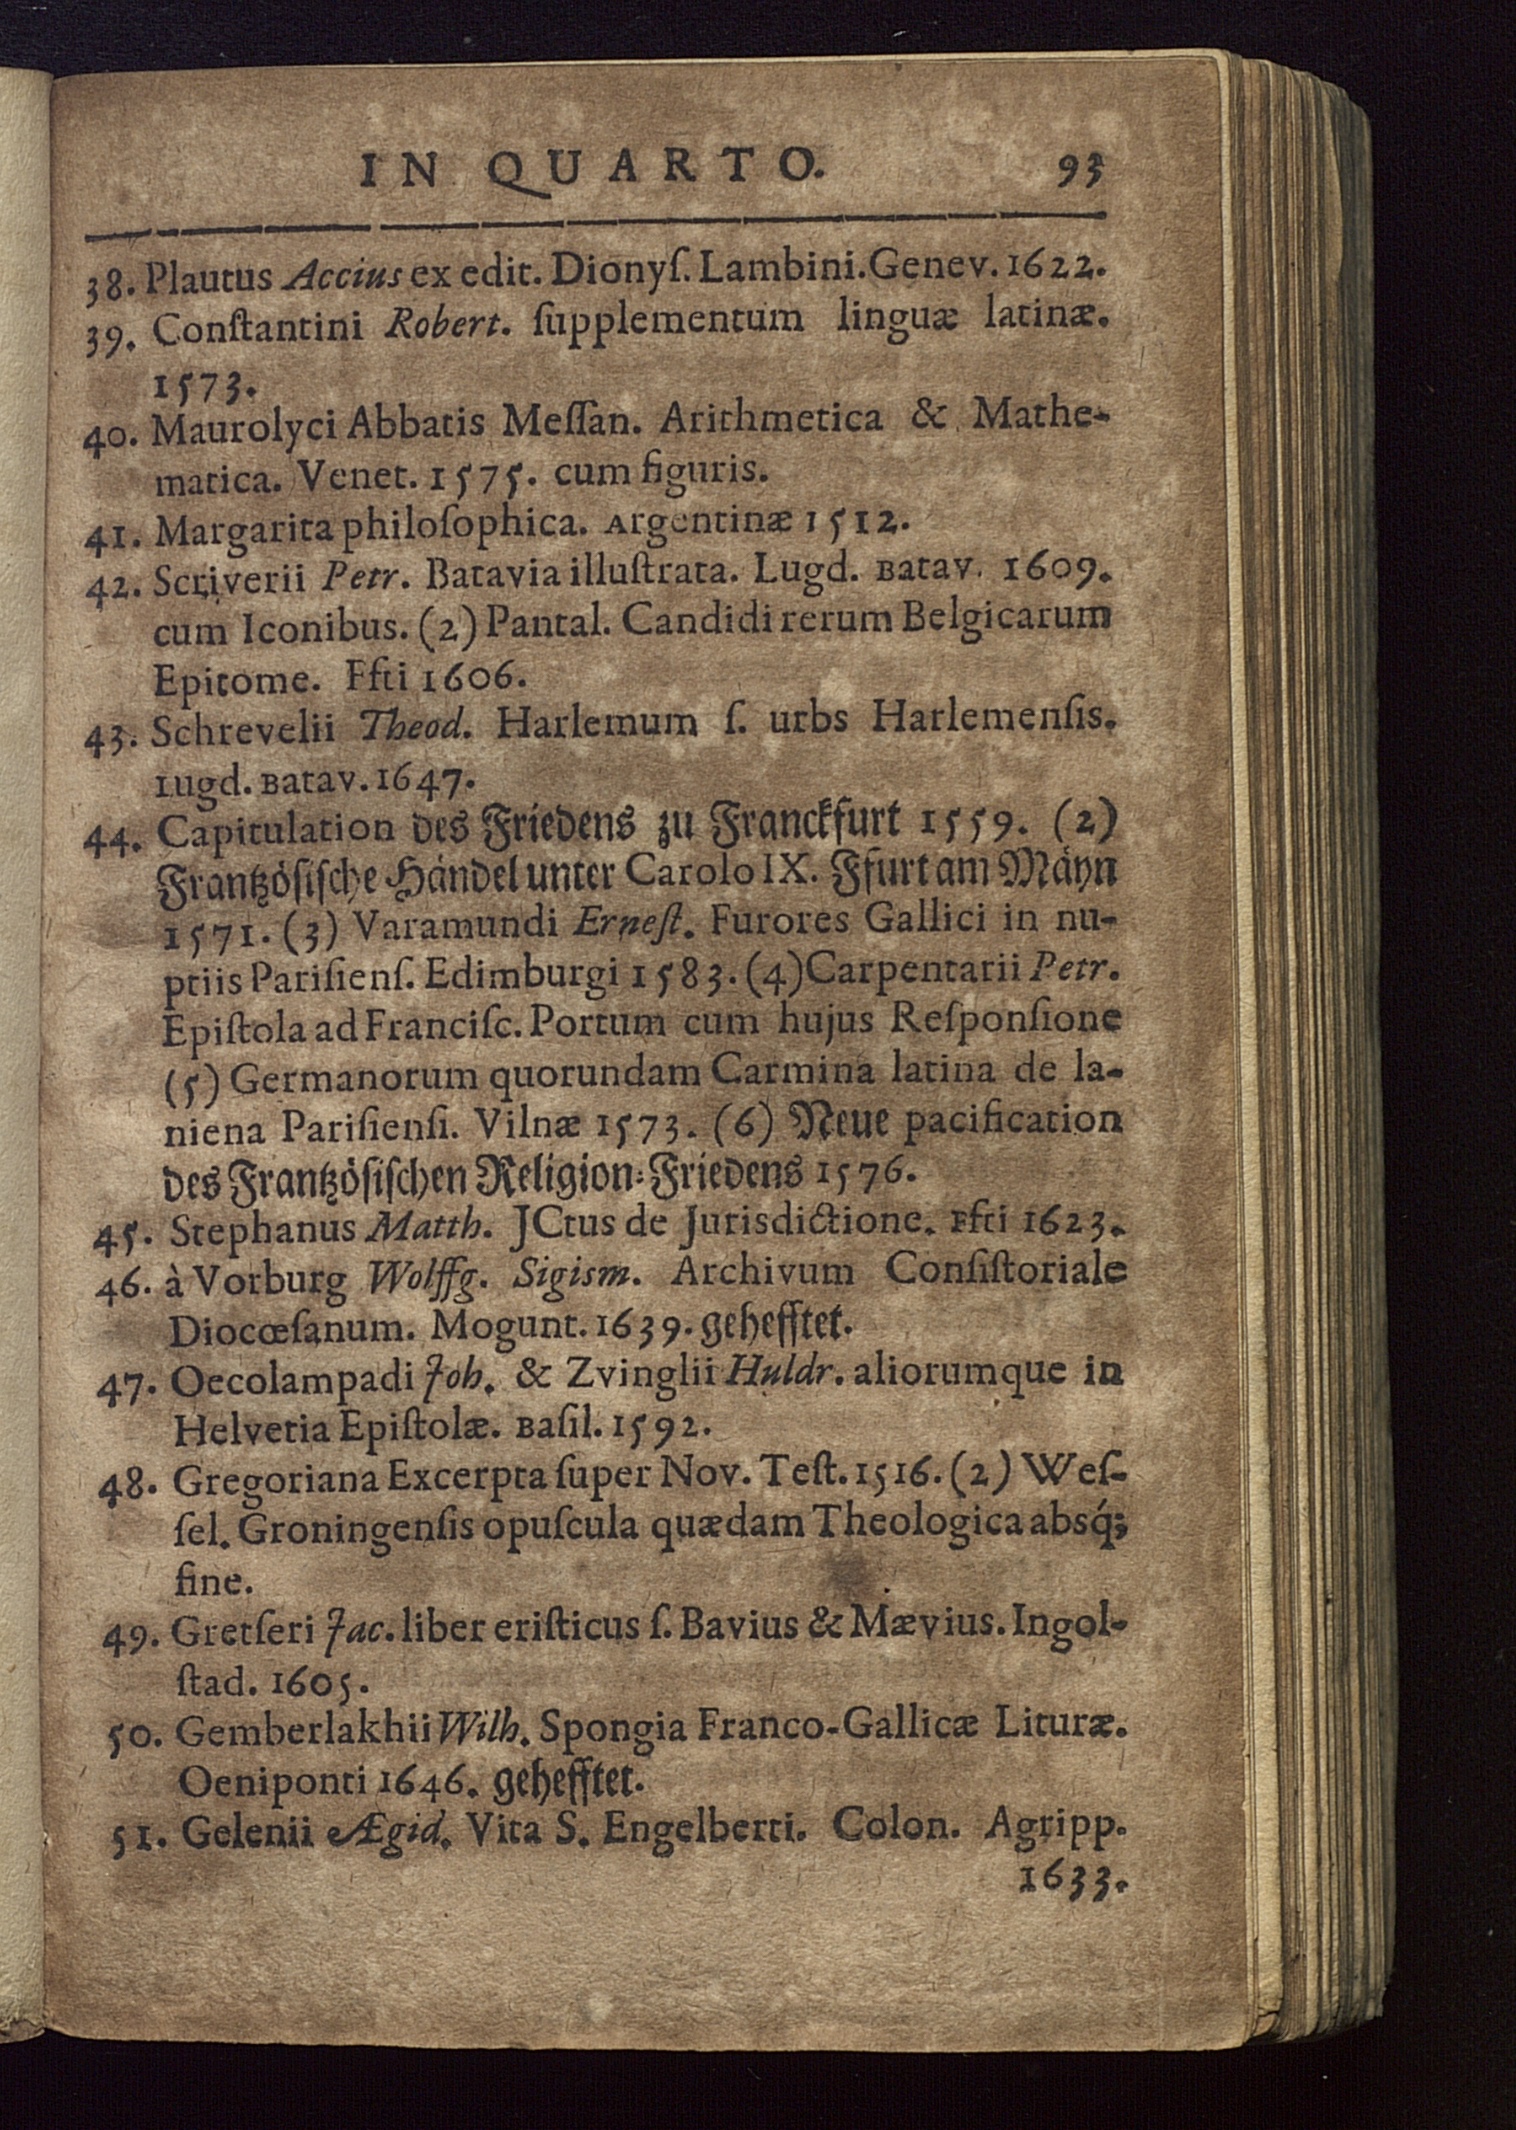 IN QUARTO. 93
38. Plautus Accius ex edit. Dionyſ. Lambini. Genev. 1622.
39. Conſtantini Robert. ſupplementum linguæ latinæ.
1573.
40. Maurolyci Abbatis Meſſan. Arithmetica & Mathe-
matica. Venet. 1575. cum figuris.
41. Margarita philoſophica. Argentinæ 1512.
42. Scriverii Petr. Batavia illuſtrata. Lugd. Batav. 1609.
cum Iconibus. (2) Pantal. Candidi rerum Belgicarum
Epitome. Ffti 1606.
43. Schrevelii Theod. Harlemum ſ. urbs Harlemenſis.
Lugd. Batav. 1647.
44. Capitulation des Friedens zu Franckfurt 1559. (2)
Frantzöſiſche Händel unter Carolo IX. Ffurt am Mäyn
1571. (3) Varamundi Erneſt. Furores Gallici in nu-
ptiis Pariſienſ. Edimburgi 1583. (4) Carpentarii Petr.
Epiſtola ad Franciſc. Portum cum hujus Reſponſione
(5) Germanorum quorundam Carmina latina de la-
niena Pariſienſi. Vilnæ 1573. (6) Neue pacification
des Frantzöſiſchen Religion-Friedens 1576.
45. Stephanus Matth. JCtus de Jurisdictione. Ffti 1623.
46. à Vorburg Wolffg. Sigism. Archivum Conſiſtoriale
Diocœſanum. Mogunt. 1639. gehefftet.
47. Oecolampadi Joh. & Zvinglii Huldr. aliorumque in
Helvetia Epiſtolæ. Baſil. 1592.
48. Gregoriana Excerpta ſuper Nov. Teſt. 1516. (2) Weſ-
ſel. Groningenſis opuſcula quædam Theologica absq́;
fine.
49. Gretſeri Jac. liber eriſticus ſ. Bavius & Mævius. Ingol-
ſtad. 1605.
50. Gemberlakhii Wilh. Spongia Franco-Gallicæ Lituræ.
Oeniponti 1646. gehefftet.
51. Gelenii Ægid. Vita S. Engelberti. Colon. Agripp.
1633.